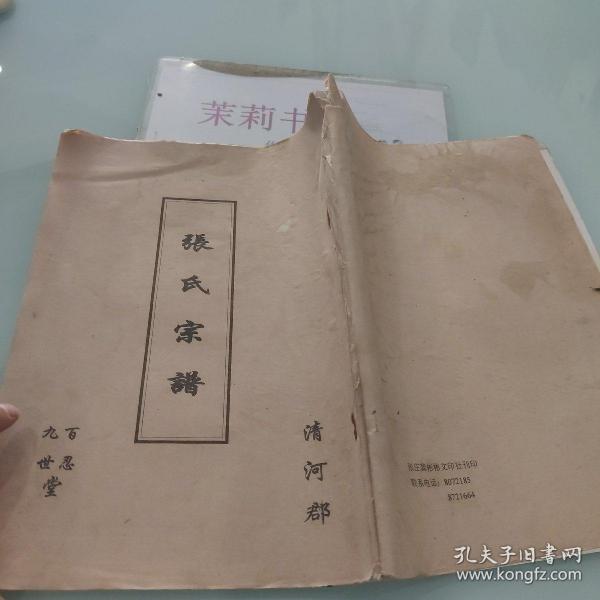 茉莉书
張氏宗譜
清河郡
百忍
九世堂
联系电话：8072185
8721664
孔夫子旧书网
www.kongfz.com